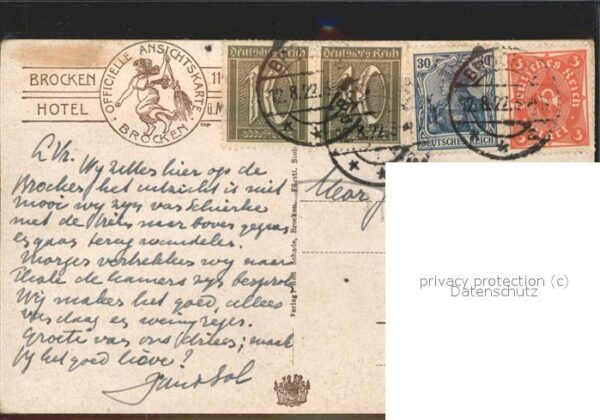 BROCKEN
HOTEL
OFFICIELLE ANSICHTSKARTE
BROCKEN
Deutsches Reich
10
Deutsches Reich
10
30
30
DEUTSCHES REICH
3
3
Deutsches Reich
12.8.22
12.8.22
L Vr. Wy zitten hier op de
Brocken, het uitzicht is niet
mooi wy zyn van Schierke
met de trein naar boven gegaan
en gaan terug wandelen.
Morgen vertrekken wy naar
Thale de kamers zyn besproken
Wij maken het goed, alleen
vandaag en weinig regen.
Groete van ons drieën; maak
jy het goed lieve?
Verlag Rud. Schade, Brocken. Fürstl.
privacy protection (c)
Datenschutz